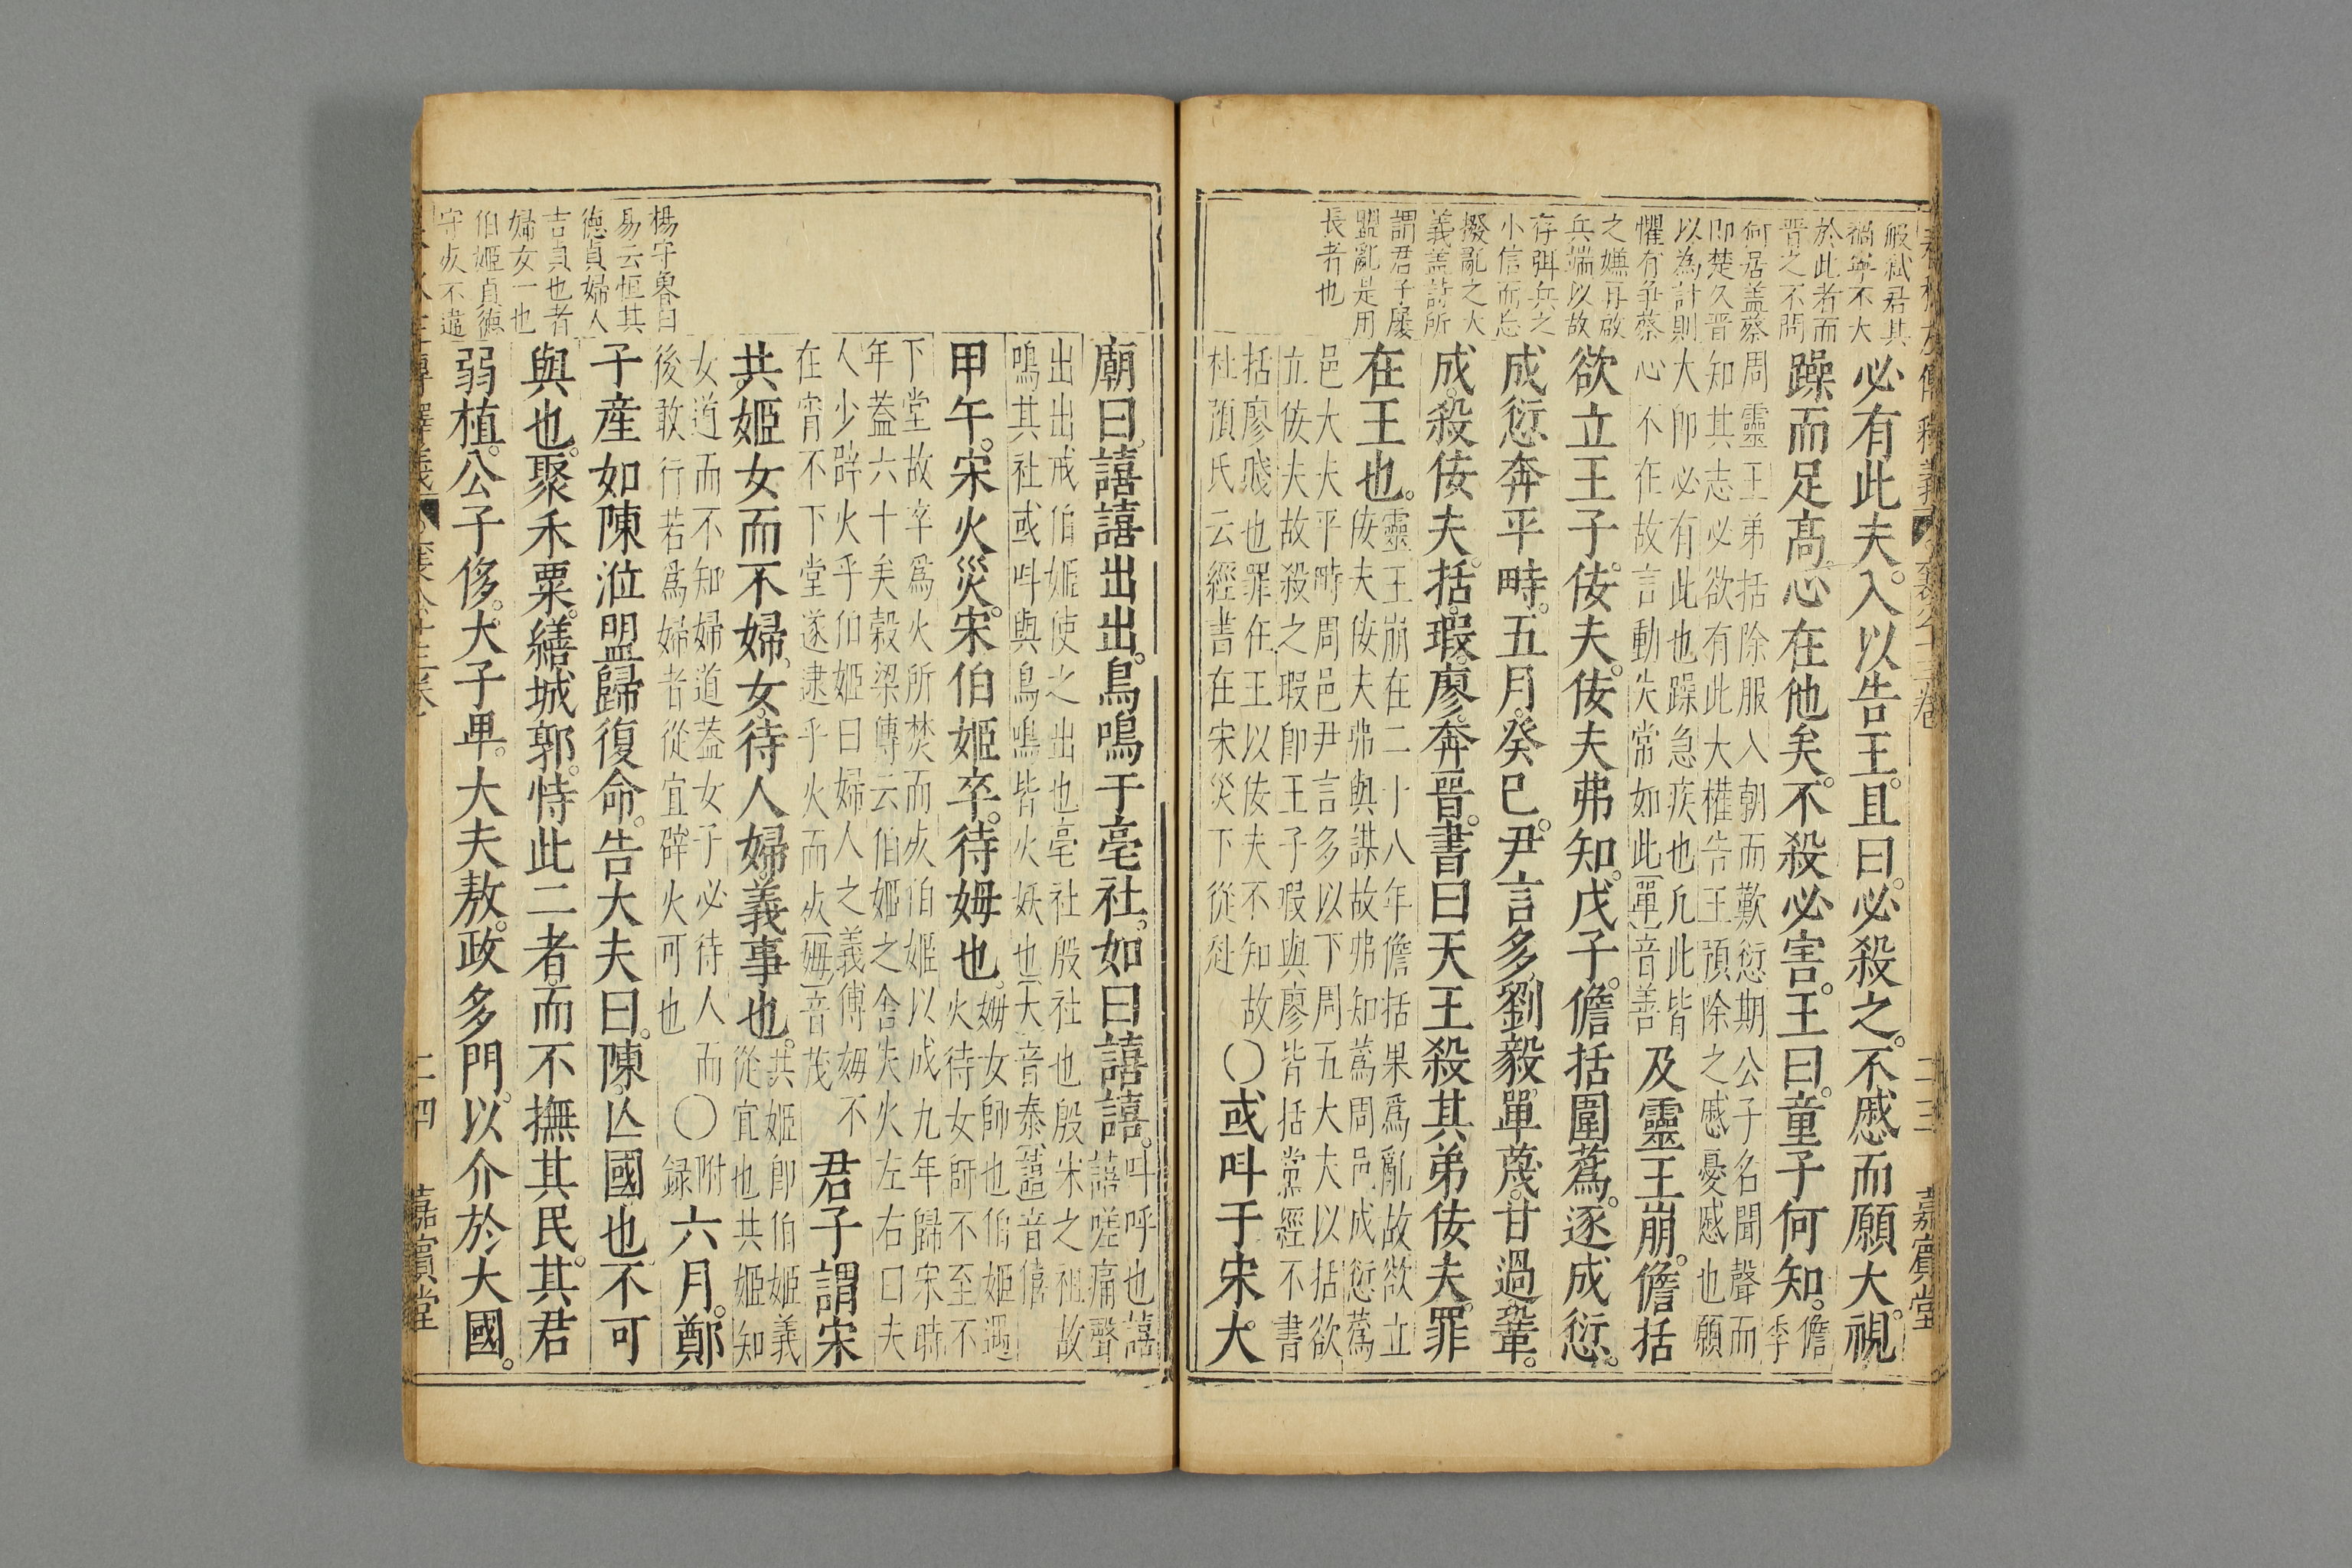 般弑君其
禍寧不大
於此者而
晋之不問
何居盖蔡
即楚久晋
以為計則
懼有争蔡
之嫌再啟
兵端以故
存弭兵之
小信而忘
撥亂之大
義盖詩所
謂君子屢
盟亂是用
長者也
必有此夫。入以告王。且曰。必殺之。不慼而願大。視
躁而足高。心在他矣。不殺必害。王曰。童子何知。儋季
周靈王弟括除服入朝而歎愆期公子名聞聲而
知其志必欲有此大權告王預除之慼憂慼也願
大即必有此也躁急疾也凢此皆
心不在故言動失常如此單音善
及靈王崩。儋括
欲立王子佞夫。佞夫弗知。戊子。儋括圍蔿。逐成愆。
成愆奔平畤。五月。癸巳。尹言多。劉毅。單蔑。甘過。鞏。
成。殺佞夫。括。瑕。廖。奔晋。書曰天王殺其弟佞夫。罪
在王也。
靈王崩在二十八年儋括果爲亂故欲立
佞夫佞夫弗與謀故弗知蔿周邑成愆蔿
邑大夫平畤周邑尹言多以下周五大夫以括欲
立佞夫故殺之瑕即王子瑕與廖皆括黨經不書
括廖賤也罪在王以佞夫不知故
杜預氏云經書在宋災下從赴
〇或呌于宋大
廟曰。譆譆出出。鳥鳴于亳社。如曰譆譆。
呌呼也譆
譆嗟痛聲
出出戒伯姬使之出也亳社殷社也殷宋之祖故
鳴其社或呌與鳥鳴皆火妖也大音泰譆音僖
甲午。宋火災。宋伯姬卒。待姆也。
姆女師也伯姬遇
火待女師不至不
下堂故卒爲火所焚而死伯姬以成九年歸宋時
年葢六十矣穀梁傳云伯姬之舍失火左右曰夫
人少辟火乎伯姬曰婦人之義傅姆不
在宵不下堂遂逮乎火而死姆音茂
君子謂宋
共姬女而不婦。女待人婦。義事也。
共姬即伯姬義
從宜也共姬知
女道而不知婦道葢女子必待人而
後敢行若爲婦者從宜辟火可也
〇附録
六月。鄭
子産如陳涖盟歸復命。告大夫曰。陳亾國也不可
與也。聚禾粟。繕城郭。恃此二者。而不撫其民。其君
弱植。公子侈。大子卑。大夫敖。政多門。以介於大國。
楊守魯曰
易云恒其
德貞婦人
吉貞也者
婦女一也
伯姬貞德
守死不違
二四
嘉賓堂